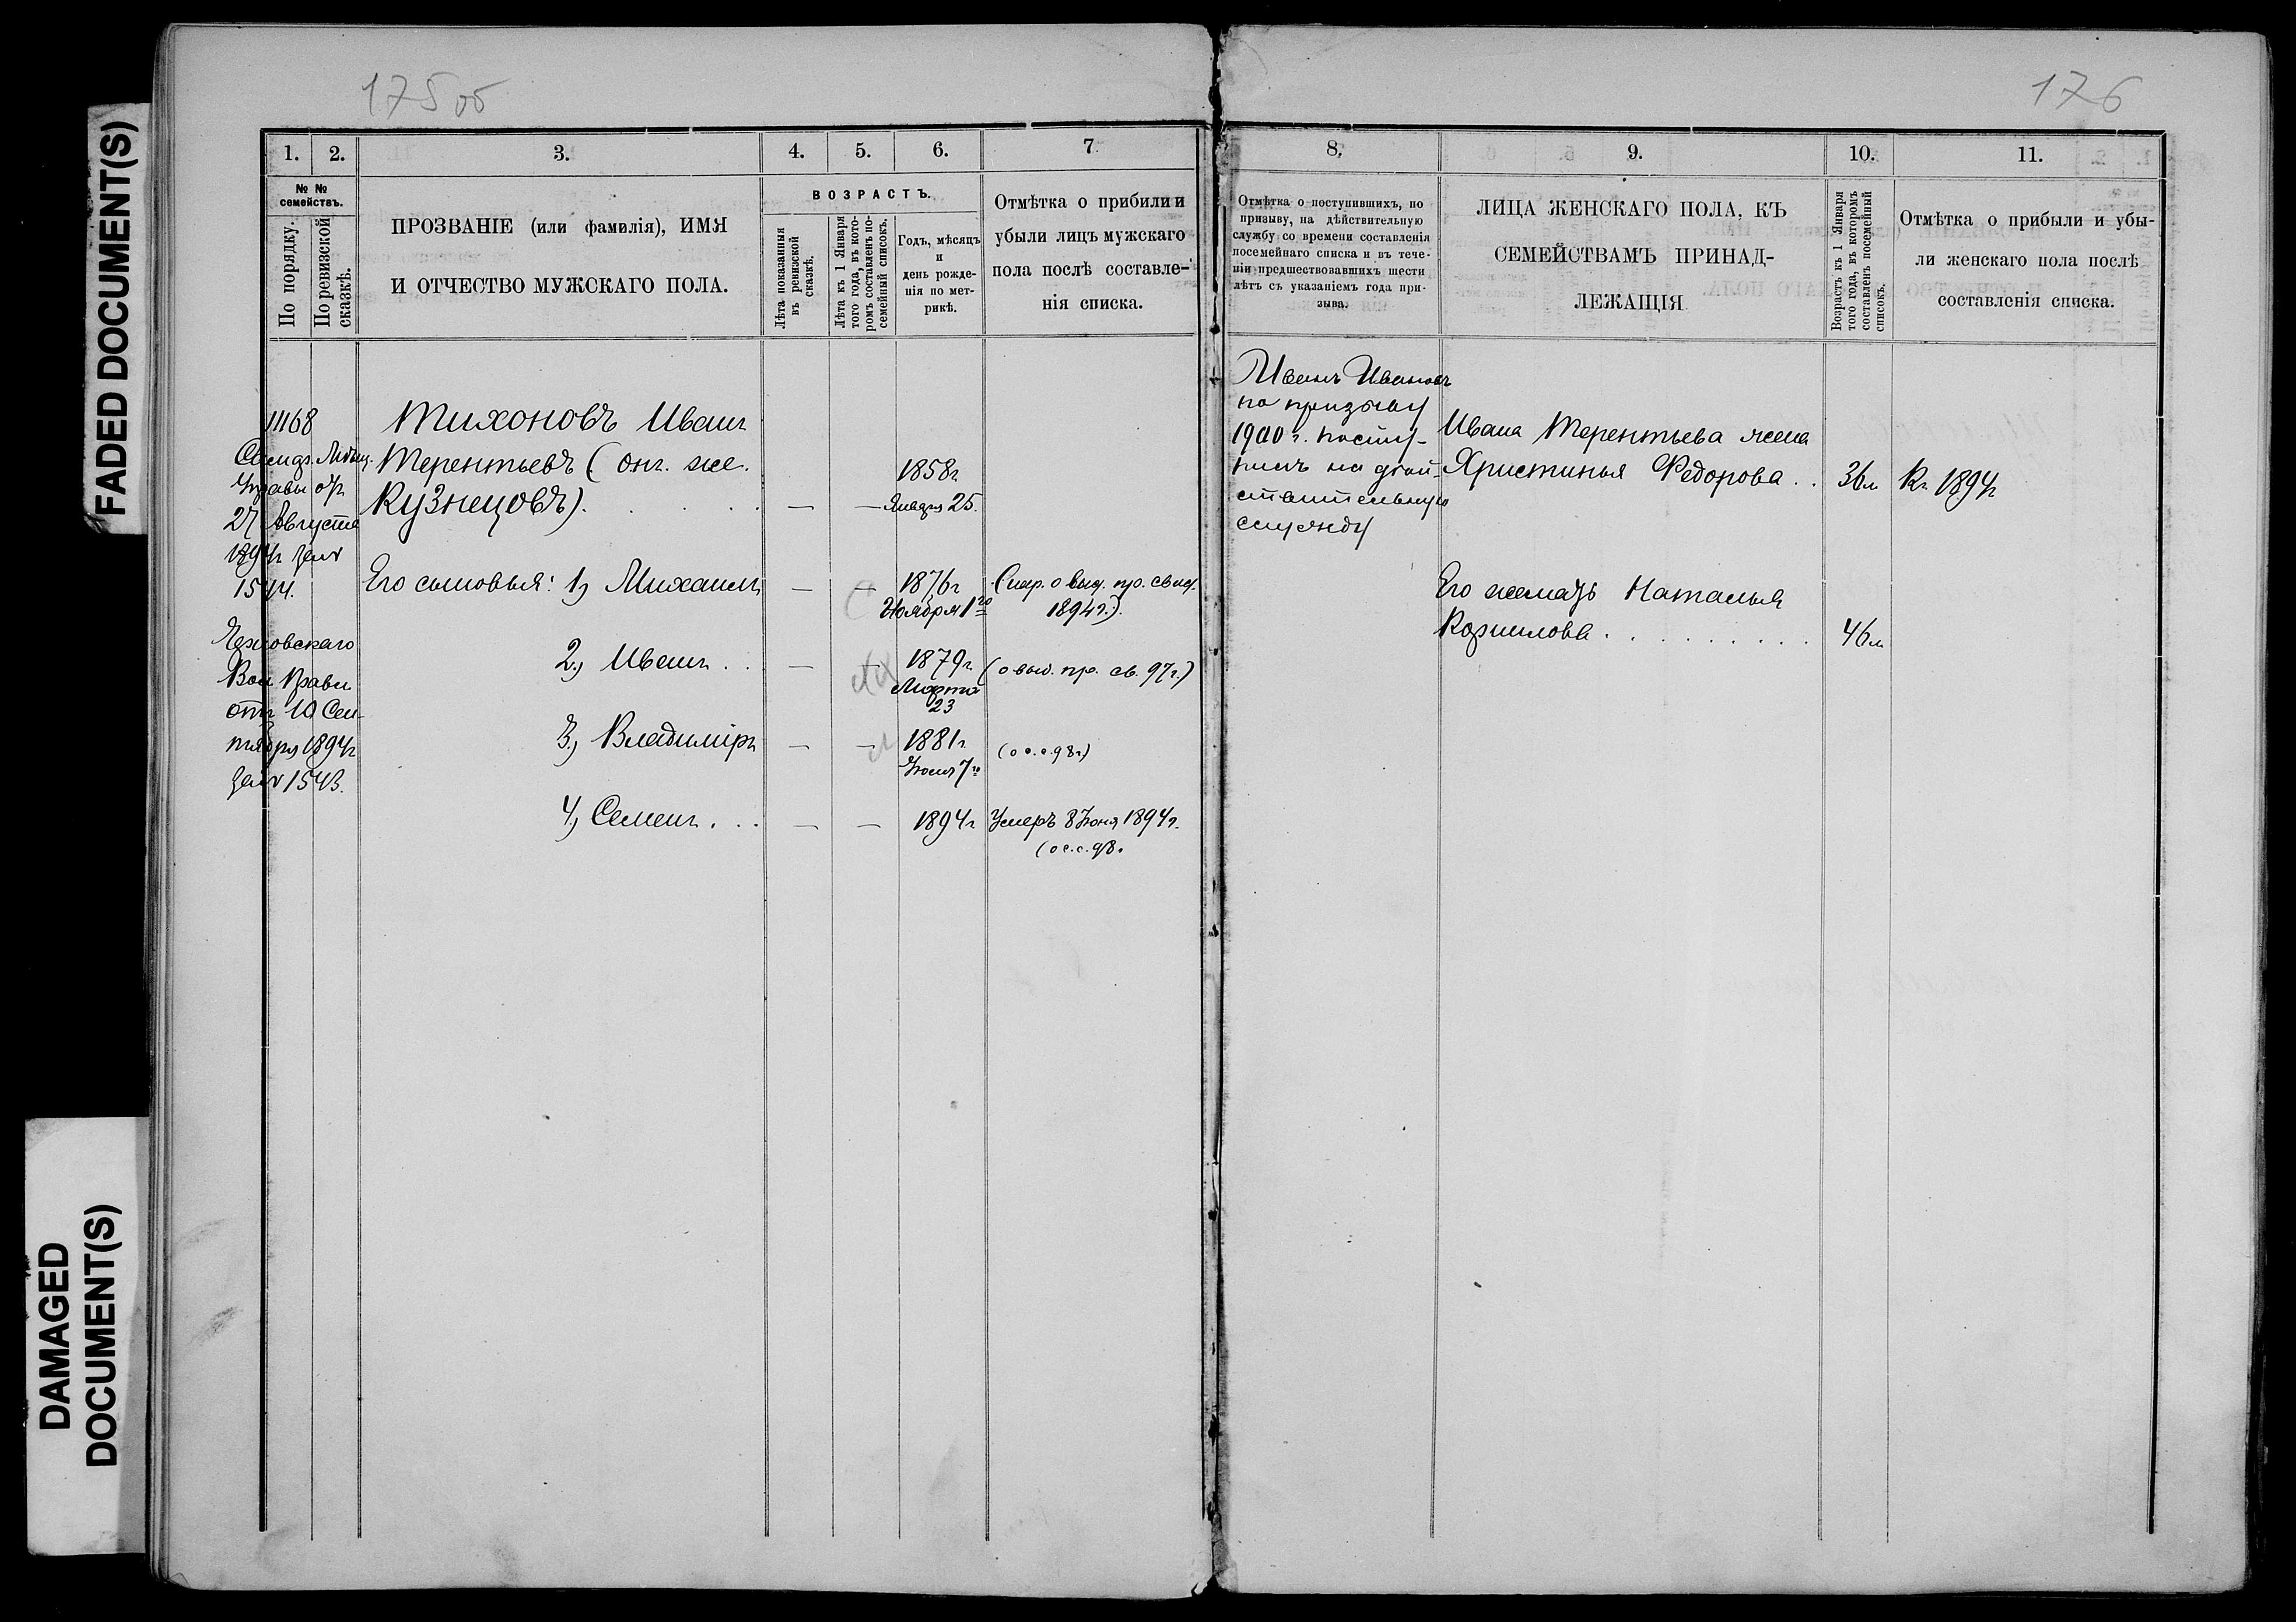 FADED DOCUMENT(S)
DAMAGED
DOCUMENT(S)
175 об
1.
2.
3.
4.
5.
6.
7
№ №
семействъ.
По порядку.
По ревизской
сказкѣ.
ПРОЗВАНІЕ (или фамилія), ИМЯ
И ОТЧЕСТВО МУЖСКАГО ПОЛА.
ВОЗРАСТЪ.
Лѣта показанныя
въ ревизской
сказкѣ.
Лѣта къ 1 Января
того года, въ кото-
ромъ составленъ по-
семейный списокъ.
Годъ, мѣсяцъ
и
день рожде-
нія по мет-
рикѣ.
Отмѣтка о прибыли и
убыли лицъ мужскаго
пола послѣ составле-
нія списка.
1168
Управы от
27 Августа
1894г за №
1544.
Вол Правл
отъ 10 Сен-
тября 1894г
за № 1543.
Тихоновъ Иванъ
Терентьевъ (онъ же
Кузнецовъ). . . . .
—
—
1858г
Января 25.
Его сыновья: 1, Михаилъ
—
—
1876г
Ноября 1го
1894г.).
2, Иванъ . .
—
—
1879г
Марта
23
(о выд. пр. св. 97г.)
3, Владиміръ
—
—
1881г
7го
(о с. с. 98г)
4, Семенъ . . .
—
—
1894г
Умеръ 8 Іюня 1894г.
(о с. с. 98.
176
8.
9.
10.
11.
Отмѣтка о поступившихъ, по
призыву, на дѣйствительную
службу со времени составленія
посемейнаго списка и въ тече-
ніи предшествовавшихъ шести
лѣтъ съ указаніемъ года при-
зыва.
ЛИЦА ЖЕНСКАГО ПОЛА, КЪ
СЕМЕЙСТВАМЪ ПРИНАД-
ЛЕЖАЩІЯ
Возрастъ къ 1 Января
того года, въ которомъ
составленъ посемейный
списокъ.
Отмѣтка о прибыли и убы-
ли женскаго пола послѣ
составленія списка.
Иванъ Ивановъ
по призыву
1900 г. посту-
пилъ на дѣй-
ствительную
службу
Ивана Терентьева жена
Христинья Федорова . .
36л
1894г
Его мать Наталья
Корнилова . . . . . . . . .
46л